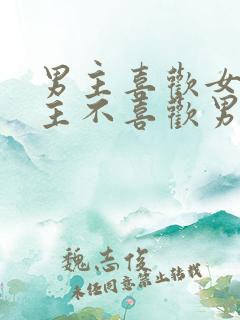 男主喜歡女
主不喜歡男
魏志俊
未任同意禁止转载